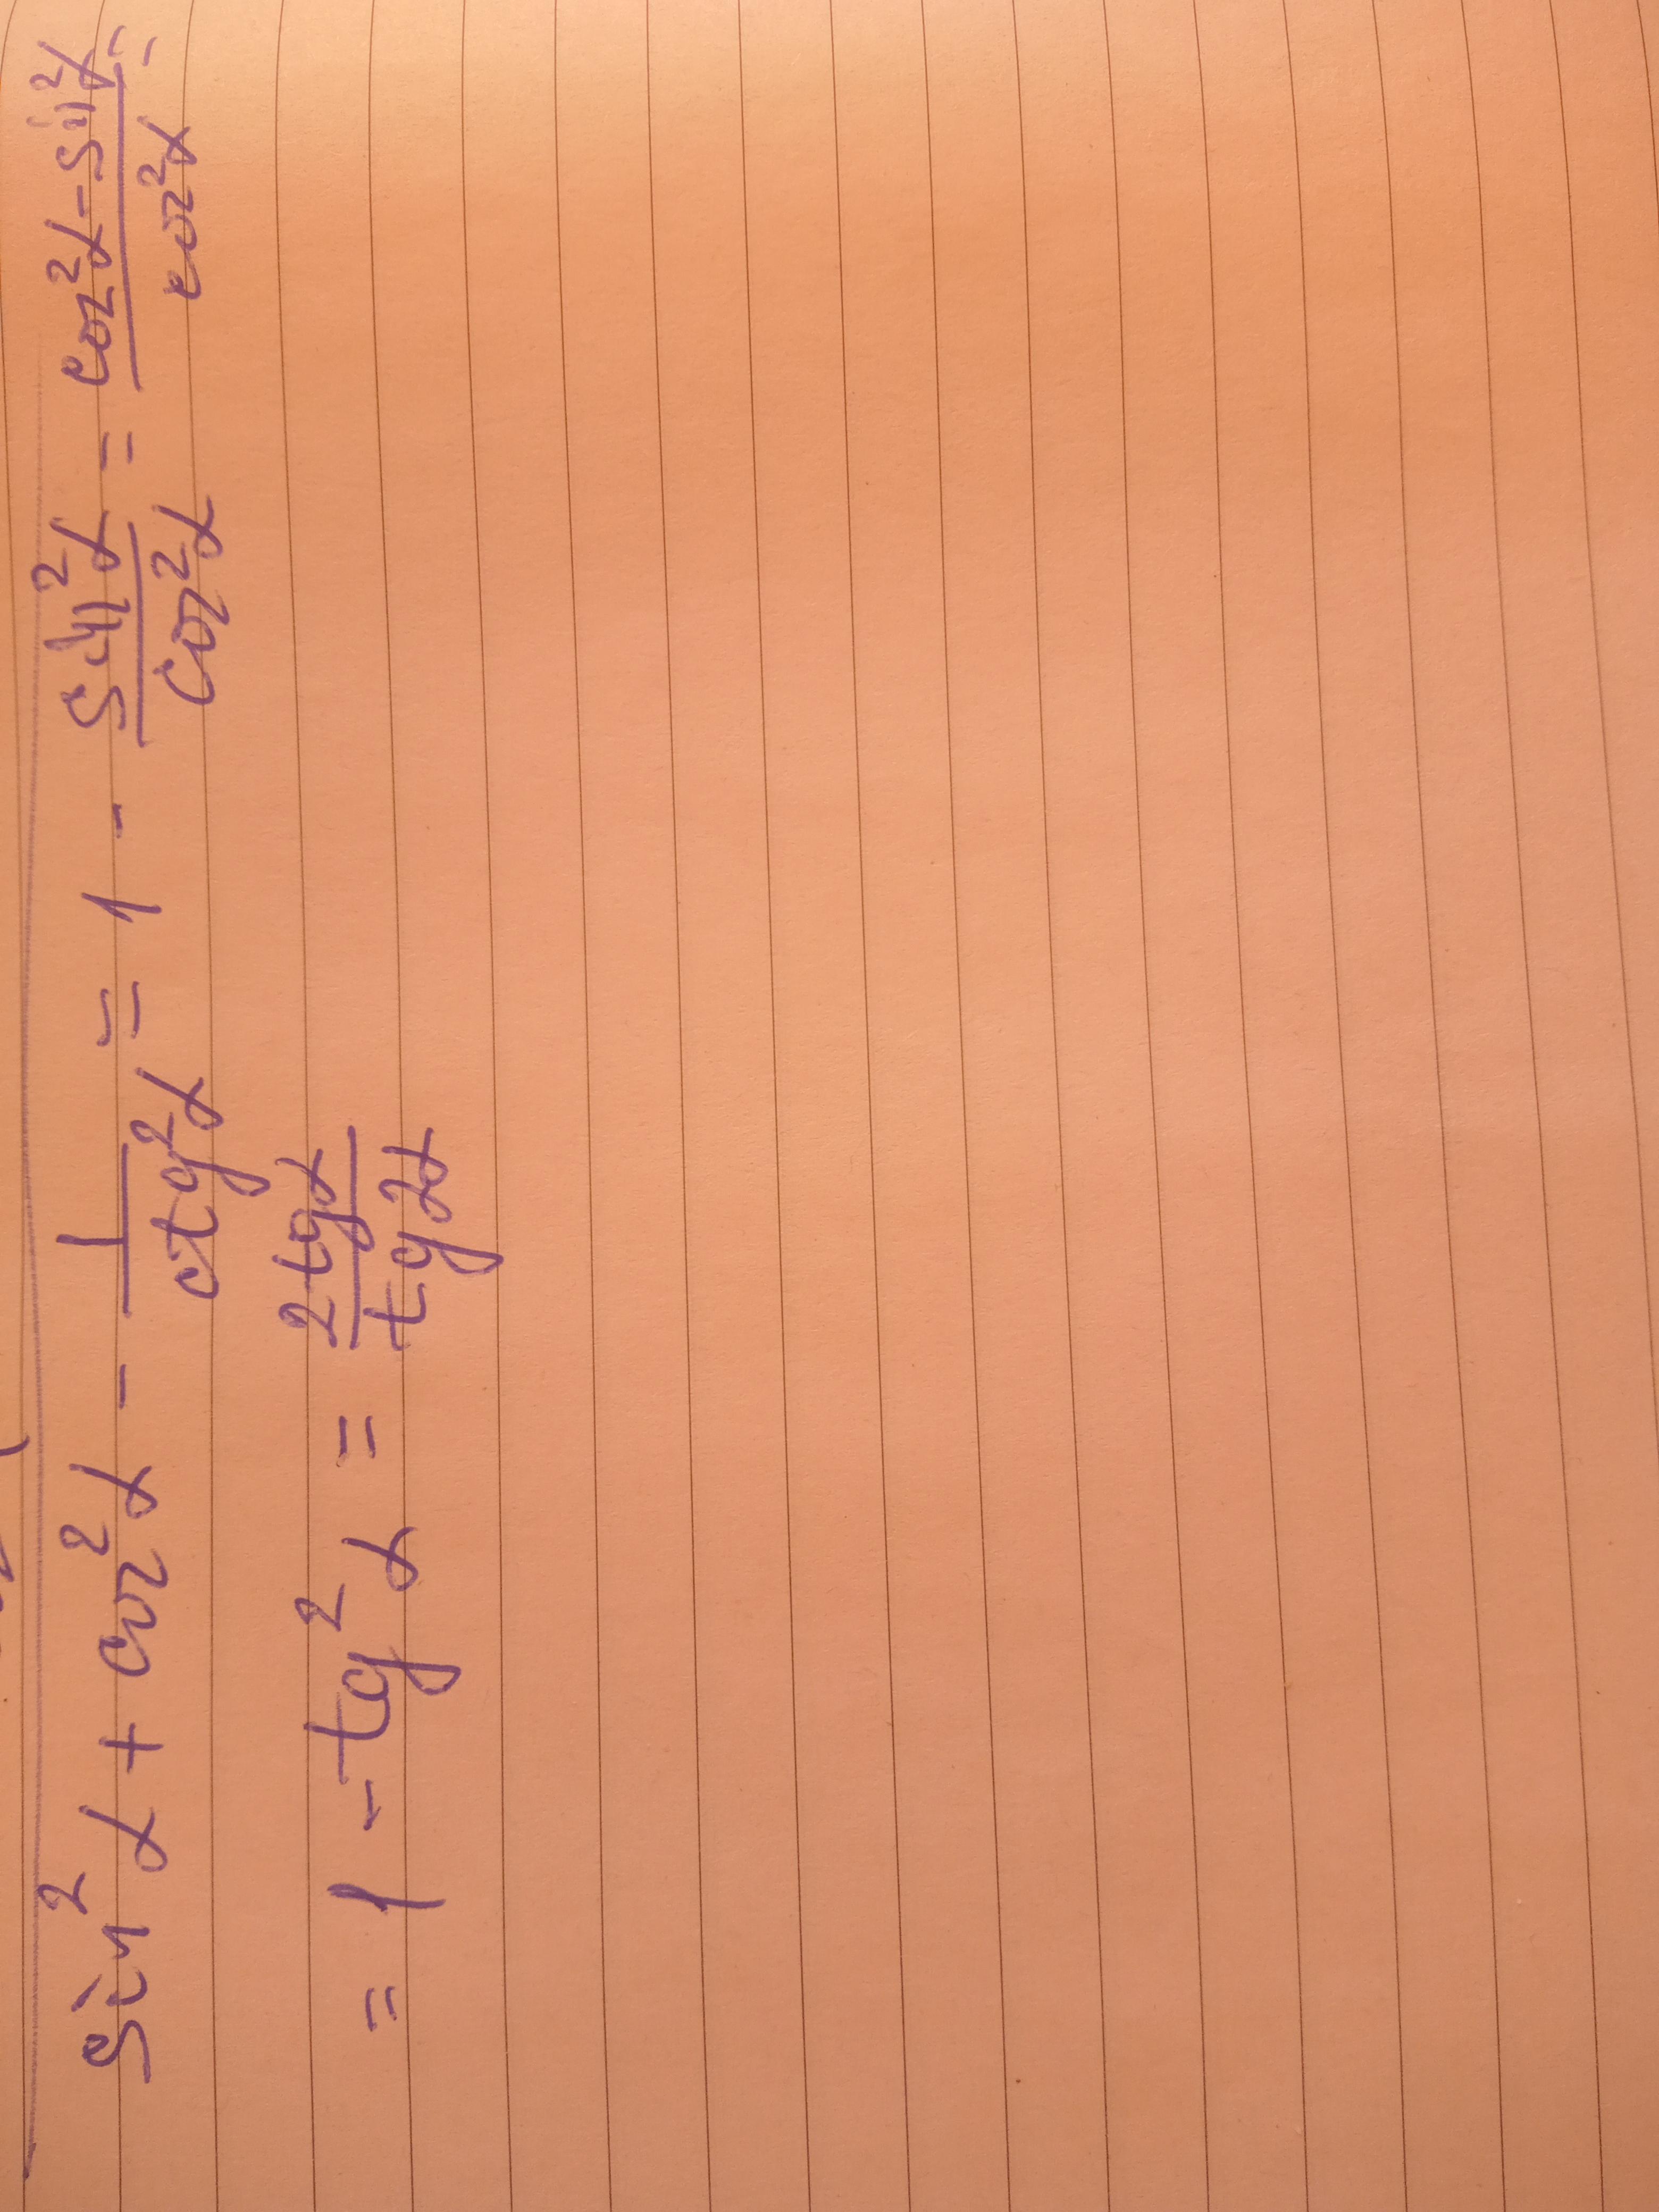 sin²α + cos²α - 1/ctg²α = 1 - sin²α/cos²α = cos²α - sin²α/cos²α =
= 1 - tg²α = 2tgα/tg2α